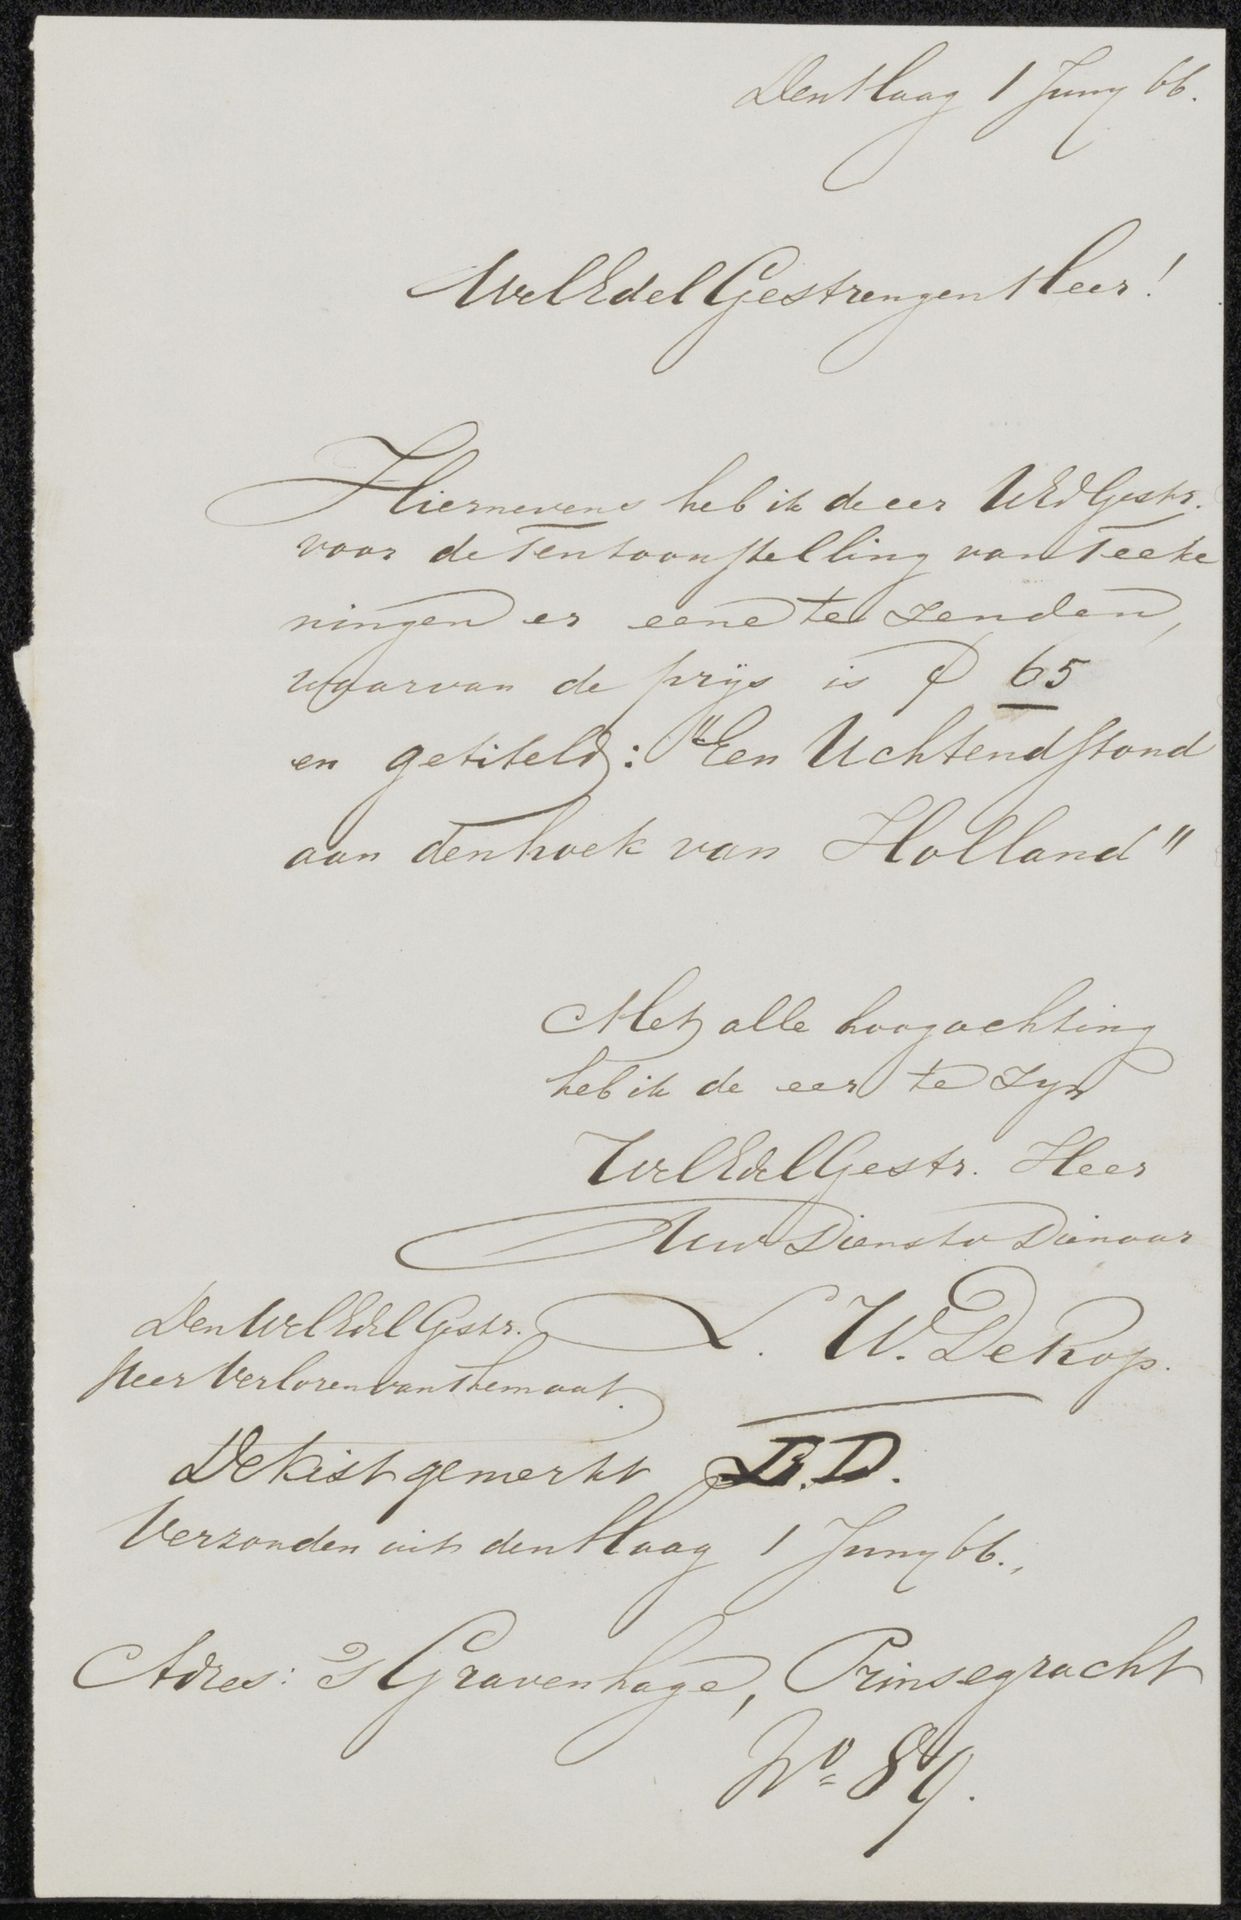 Den Haag 1 Juny 66.
WelEdelGestrengen Heer!
Hiernevens heb ik de eer UEdGestr.
voor de Tentoonstelling van Teeke
ningen er eene te zenden,
waarvan de prijs is ƒ 65
en getiteld: "Een Uchtendstond
aan den hoek van Holland"
Met alle hoogachting
heb ik de eer te zyn
WelEdelGestr. Heer
Uw Dienstv Dienaar
L. W. De Kop.
Den WelEdelGestr.
Heer Verloren van Themaat.
De Kist gemerkt B.D.
Verzonden uit den Haag 1 Juny 66.,
Adres: 's Gravenhage, Prinsegracht
No 89.